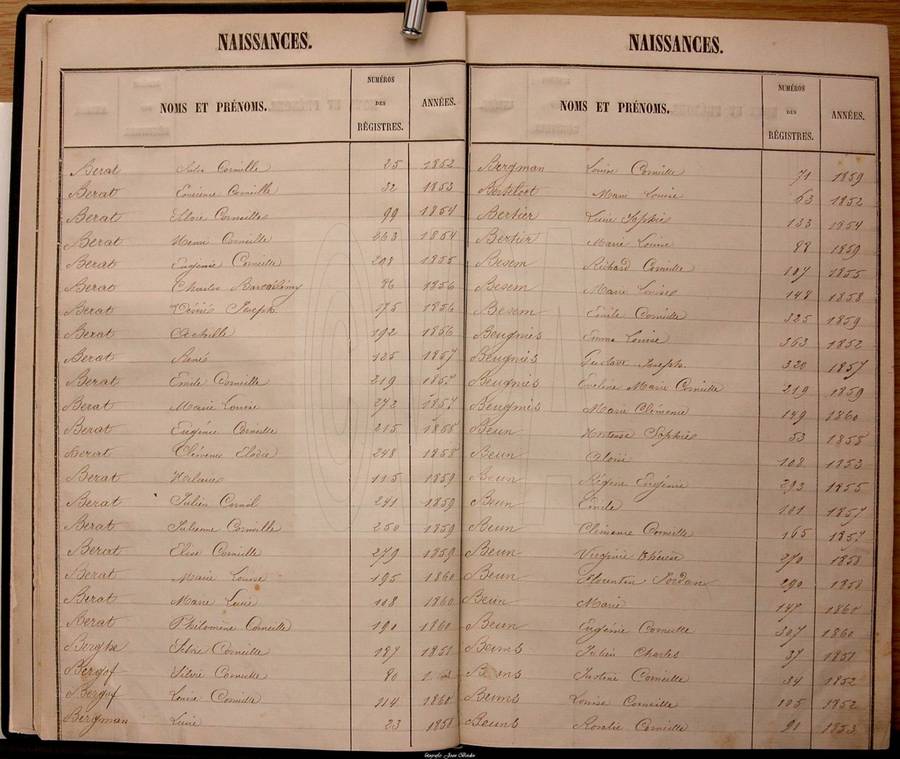 NAISSANCES.
NOMS ET PRÉNOMS. NUMÉROS DES RÉGISTRES. ANNÉES.
Berat Jules Corneille 25 1852
Berat Corneille 32 1853
Berat Corneille 99 1854
Berat Henri Corneille 263 1854
Berat Eugénie Corneille 208 1855
Berat Charles 86 1856
Berat Désiré Joseph 175 1856
Berat Achille 192 1856
Berat 125 1857
Berat Emile Corneille 219 1857
Berat Marie Louise 272 1857
Berat Eugénie Corneille 215 1858
Berat Clémence Elodie 248 1858
Berat 115 1859
Berat Julien 241 1859
Berat Julienne Corneille 250 1859
Berat Elise Corneille 279 1859
Berat Marie Louise 195 1860
Berat Marie 108 1860
Berat Philomène Corneille 190 1860
Berghe Corneille 187 1851
Bergof Silvie Corneille 80
Bergof Louise Corneille 114 1860
Bergman 23 1858
NAISSANCES.
NOMS ET PRÉNOMS. NUMÉROS DES RÉGISTRES. ANNÉES.
Bergman Louise Corneille 71 1859
Marie Louise 63 1852
Bertier Sophie 133 1854
Bertier Marie Louise 88 1859
Besem Richard Corneille 107 1855
Besem Marie Louise 148 1858
Besem Emile Corneille 325 1859
Beugnis Emma Louise 363 1852
Beugnis Gustave Joseph 320 1857
Beugnis Eveline Marie Corneille 219 1859
Beugnis Marie Clémence 149 1860
Beun Hortense Sophie 53
Beun 108 1853
Beun Régine Eugénie 293 1855
Beun Emile 101 1857
Beun Clémence Corneille 165 1857
Beun Virginie Thérèse 270 1858
Beun 290 1858
Beun Marie 147 1860
Beun Eugénie Corneille 307 1860
Beuns Julien Charles 37 1851
Beuns Justine Corneille 34 1852
Beuns Louise Corneille 105 1852
Beuns Rosalie Corneille 91 1853